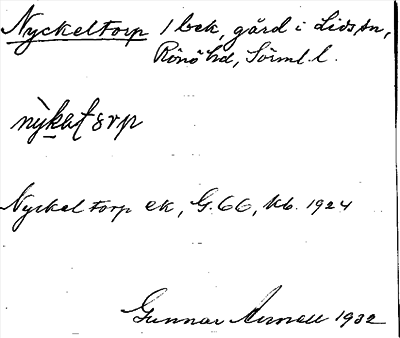 Nyckeltorp 1 bek, gård i Lids sn,
Rönö hd, Sörml. l.
Nyckeltorp ek, G. 66, kb. 1924
Gunnar 1932